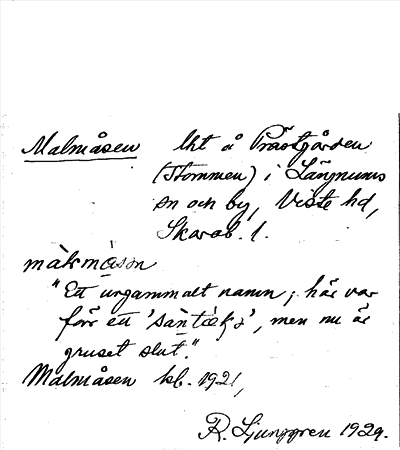 Malmåsen lht å Prästgården
(Stommen) i Längnums
sn och by, Viste hd,
Skarab. l.
màlmåsen
"Ett urgammalt namn; här var
förr ett 'sàntækt', men nu är
gruset slut."
Malmåsen kb. 1921,
R. Ljunggren 1929.